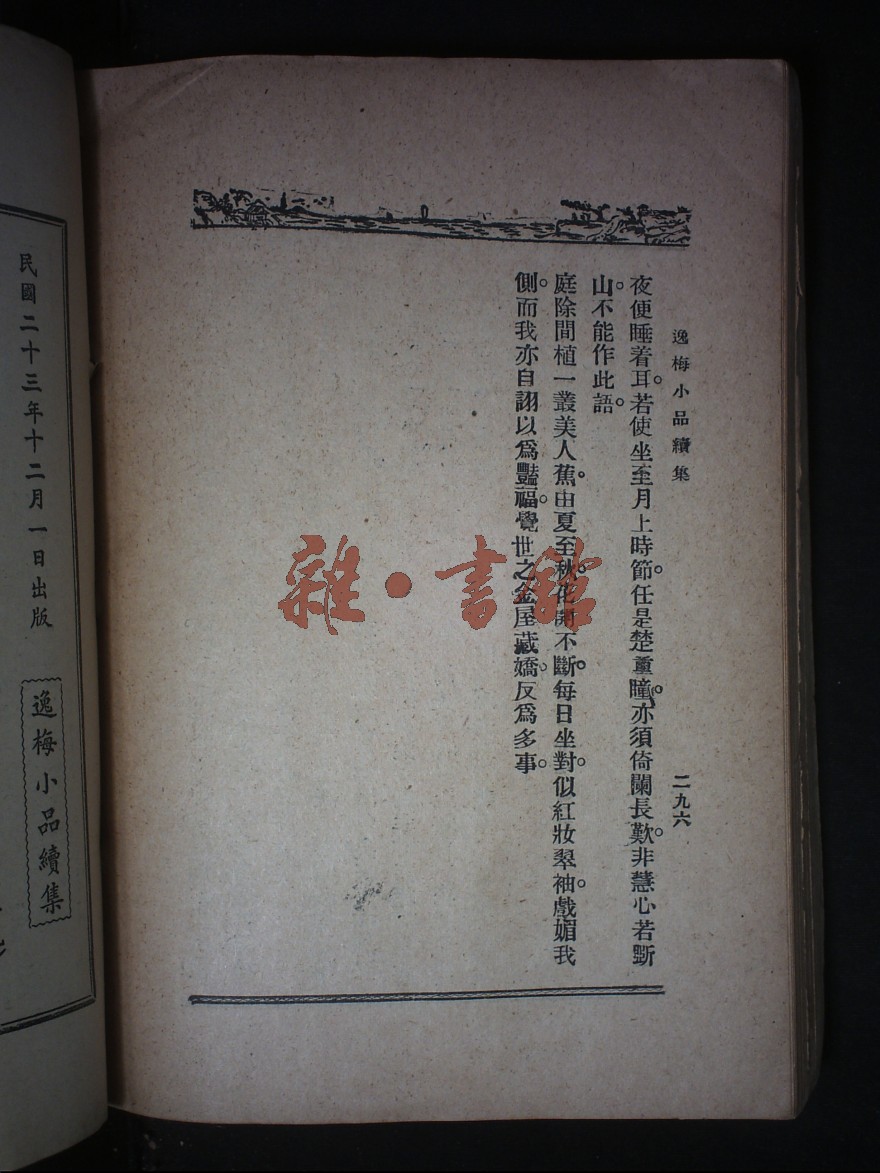 逸梅小品續集
二九六
夜便睡着耳。若使坐至月上時節。任是楚重瞳。亦須倚闌長歎。非慧心若斷
山。不能作此語。
庭除間植一叢美人蕉。由夏至秋。花開不斷。每日坐對。似紅妝翠袖。戲媚我
側。而我亦自詡以爲豔福。覺世之金屋藏嬌。反爲多事。
雜·書館
民國二十三年十二月一日出版
逸梅小品續集